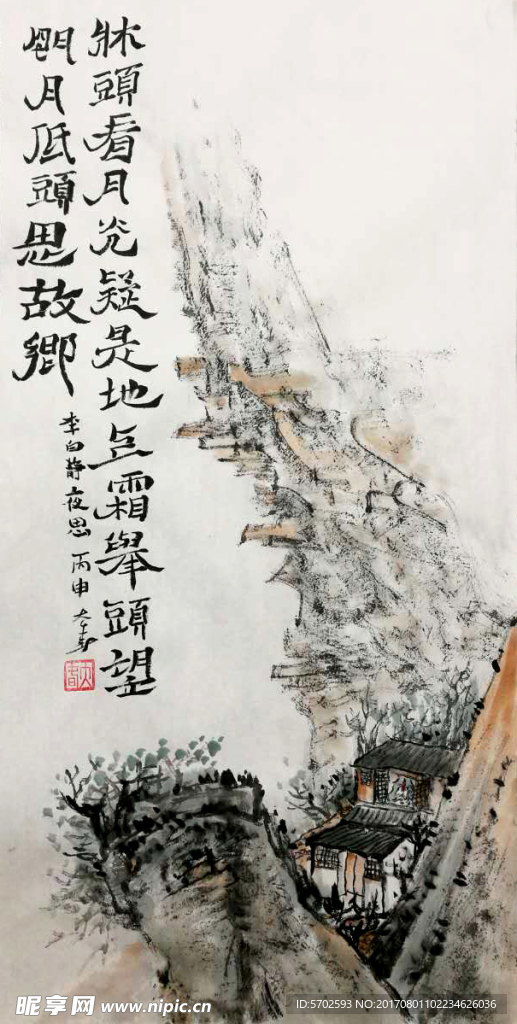 牀頭看月光疑是地上霜舉頭望
明月低頭思故鄉
李白静夜思 丙申
昵享网 www.nipic.cn
ID:5702593 NO:20170801102234626036